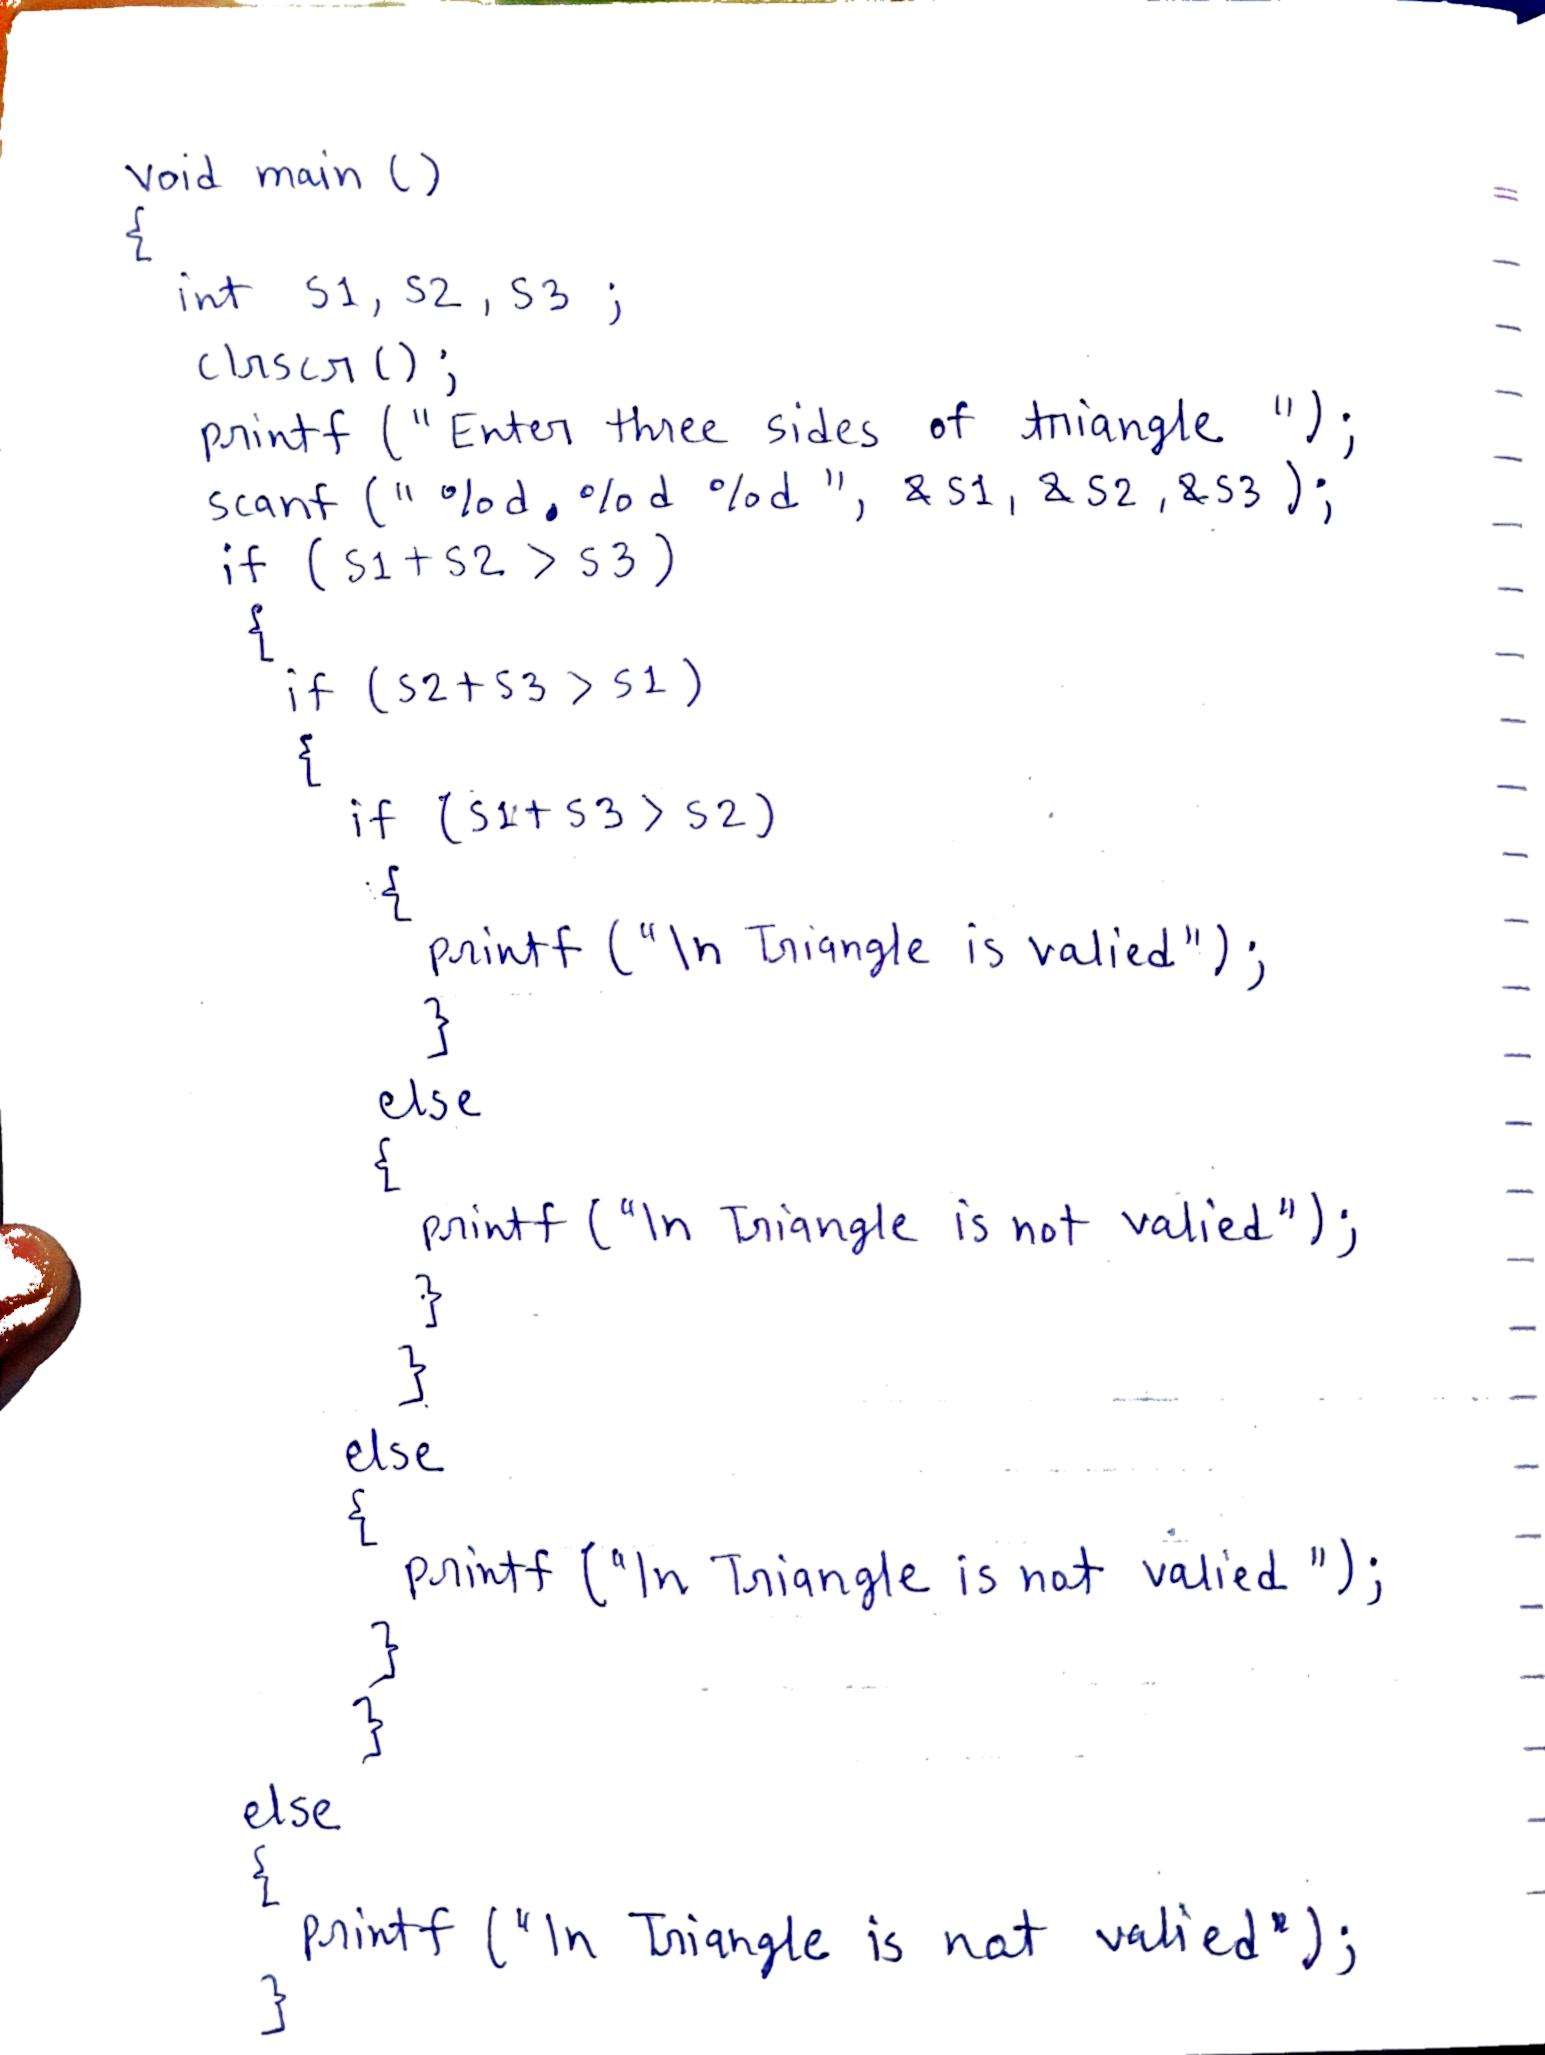 void main ()
{
int S1, S2, S3 ;
clrscr ();
printf ("Enter three sides of triangle ");
scanf ("%d, %d %d", &S1, &S2, &S3 );
if (S1+S2 > S3)
{
if (S2+S3 > S1)
{
if (S1+S3 > S2)
{
printf ("\n Triangle is valied");
}
else
{
printf ("\n Triangle is not valied");
}
}
else
{
printf ("\n Triangle is not valied ");
}
}
else
{
printf ("\n Triangle is not valied");
}